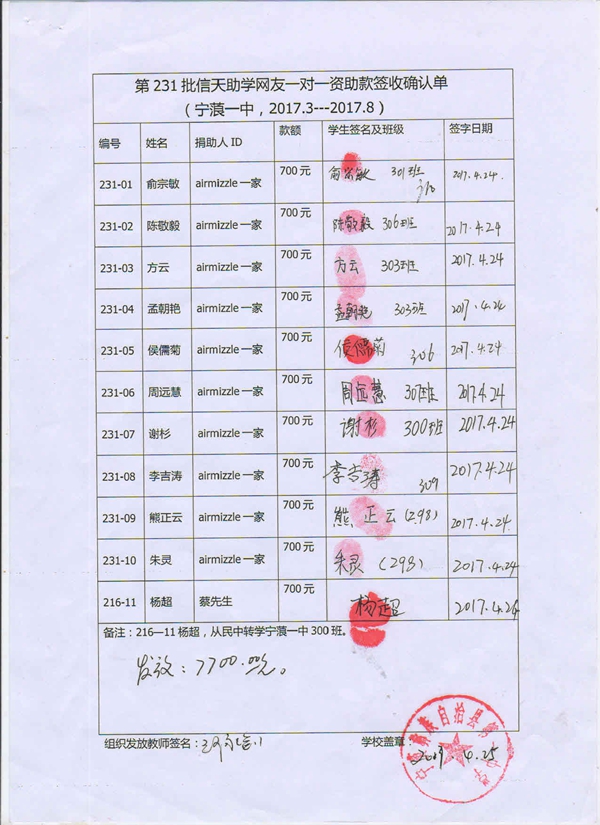 第 231 批信天助学网友一对一资助款签收确认单
（宁蒗一中，2017.3---2017.8）
编号 姓名 捐助人 ID 款额 学生签名及班级 签字日期
231-01 俞宗敏 airmizzle 一家 700 元 俞宗敏 301班 310 2017.4.24
231-02 陈敬毅 airmizzle 一家 700元 陈敬毅 306班 2017.4.24
231-03 方云 airmizzle 一家 700元 方云 303班 2017.4.24
231-04 孟朝艳 airmizzle 一家 700元 孟朝艳 303班 2017.4.24
231-05 侯儒菊 airmizzle 一家 700元 侯儒菊 306 2017.4.24
231-06 周远慧 airmizzle 一家 700元 周远慧 307班 2017.4.24
231-07 谢杉 airmizzle 一家 700元 谢杉 300班 2017.4.24
231-08 李吉涛 airmizzle 一家 700元 李吉涛 309 2017.4.24
231-09 熊正云 airmizzle 一家 700元 熊正云 (298) 2017.4.24
231-10 朱灵 airmizzle 一家 700元 朱灵 (293) 2017.4.24
216-11 杨超 蔡先生 700元 杨超 2017.4.26
备注：216—11 杨超，从民中转学宁蒗一中 300 班。
发放：7700.00元。
组织发放教师签名：
学校盖章：
族自治县
2017 4.25